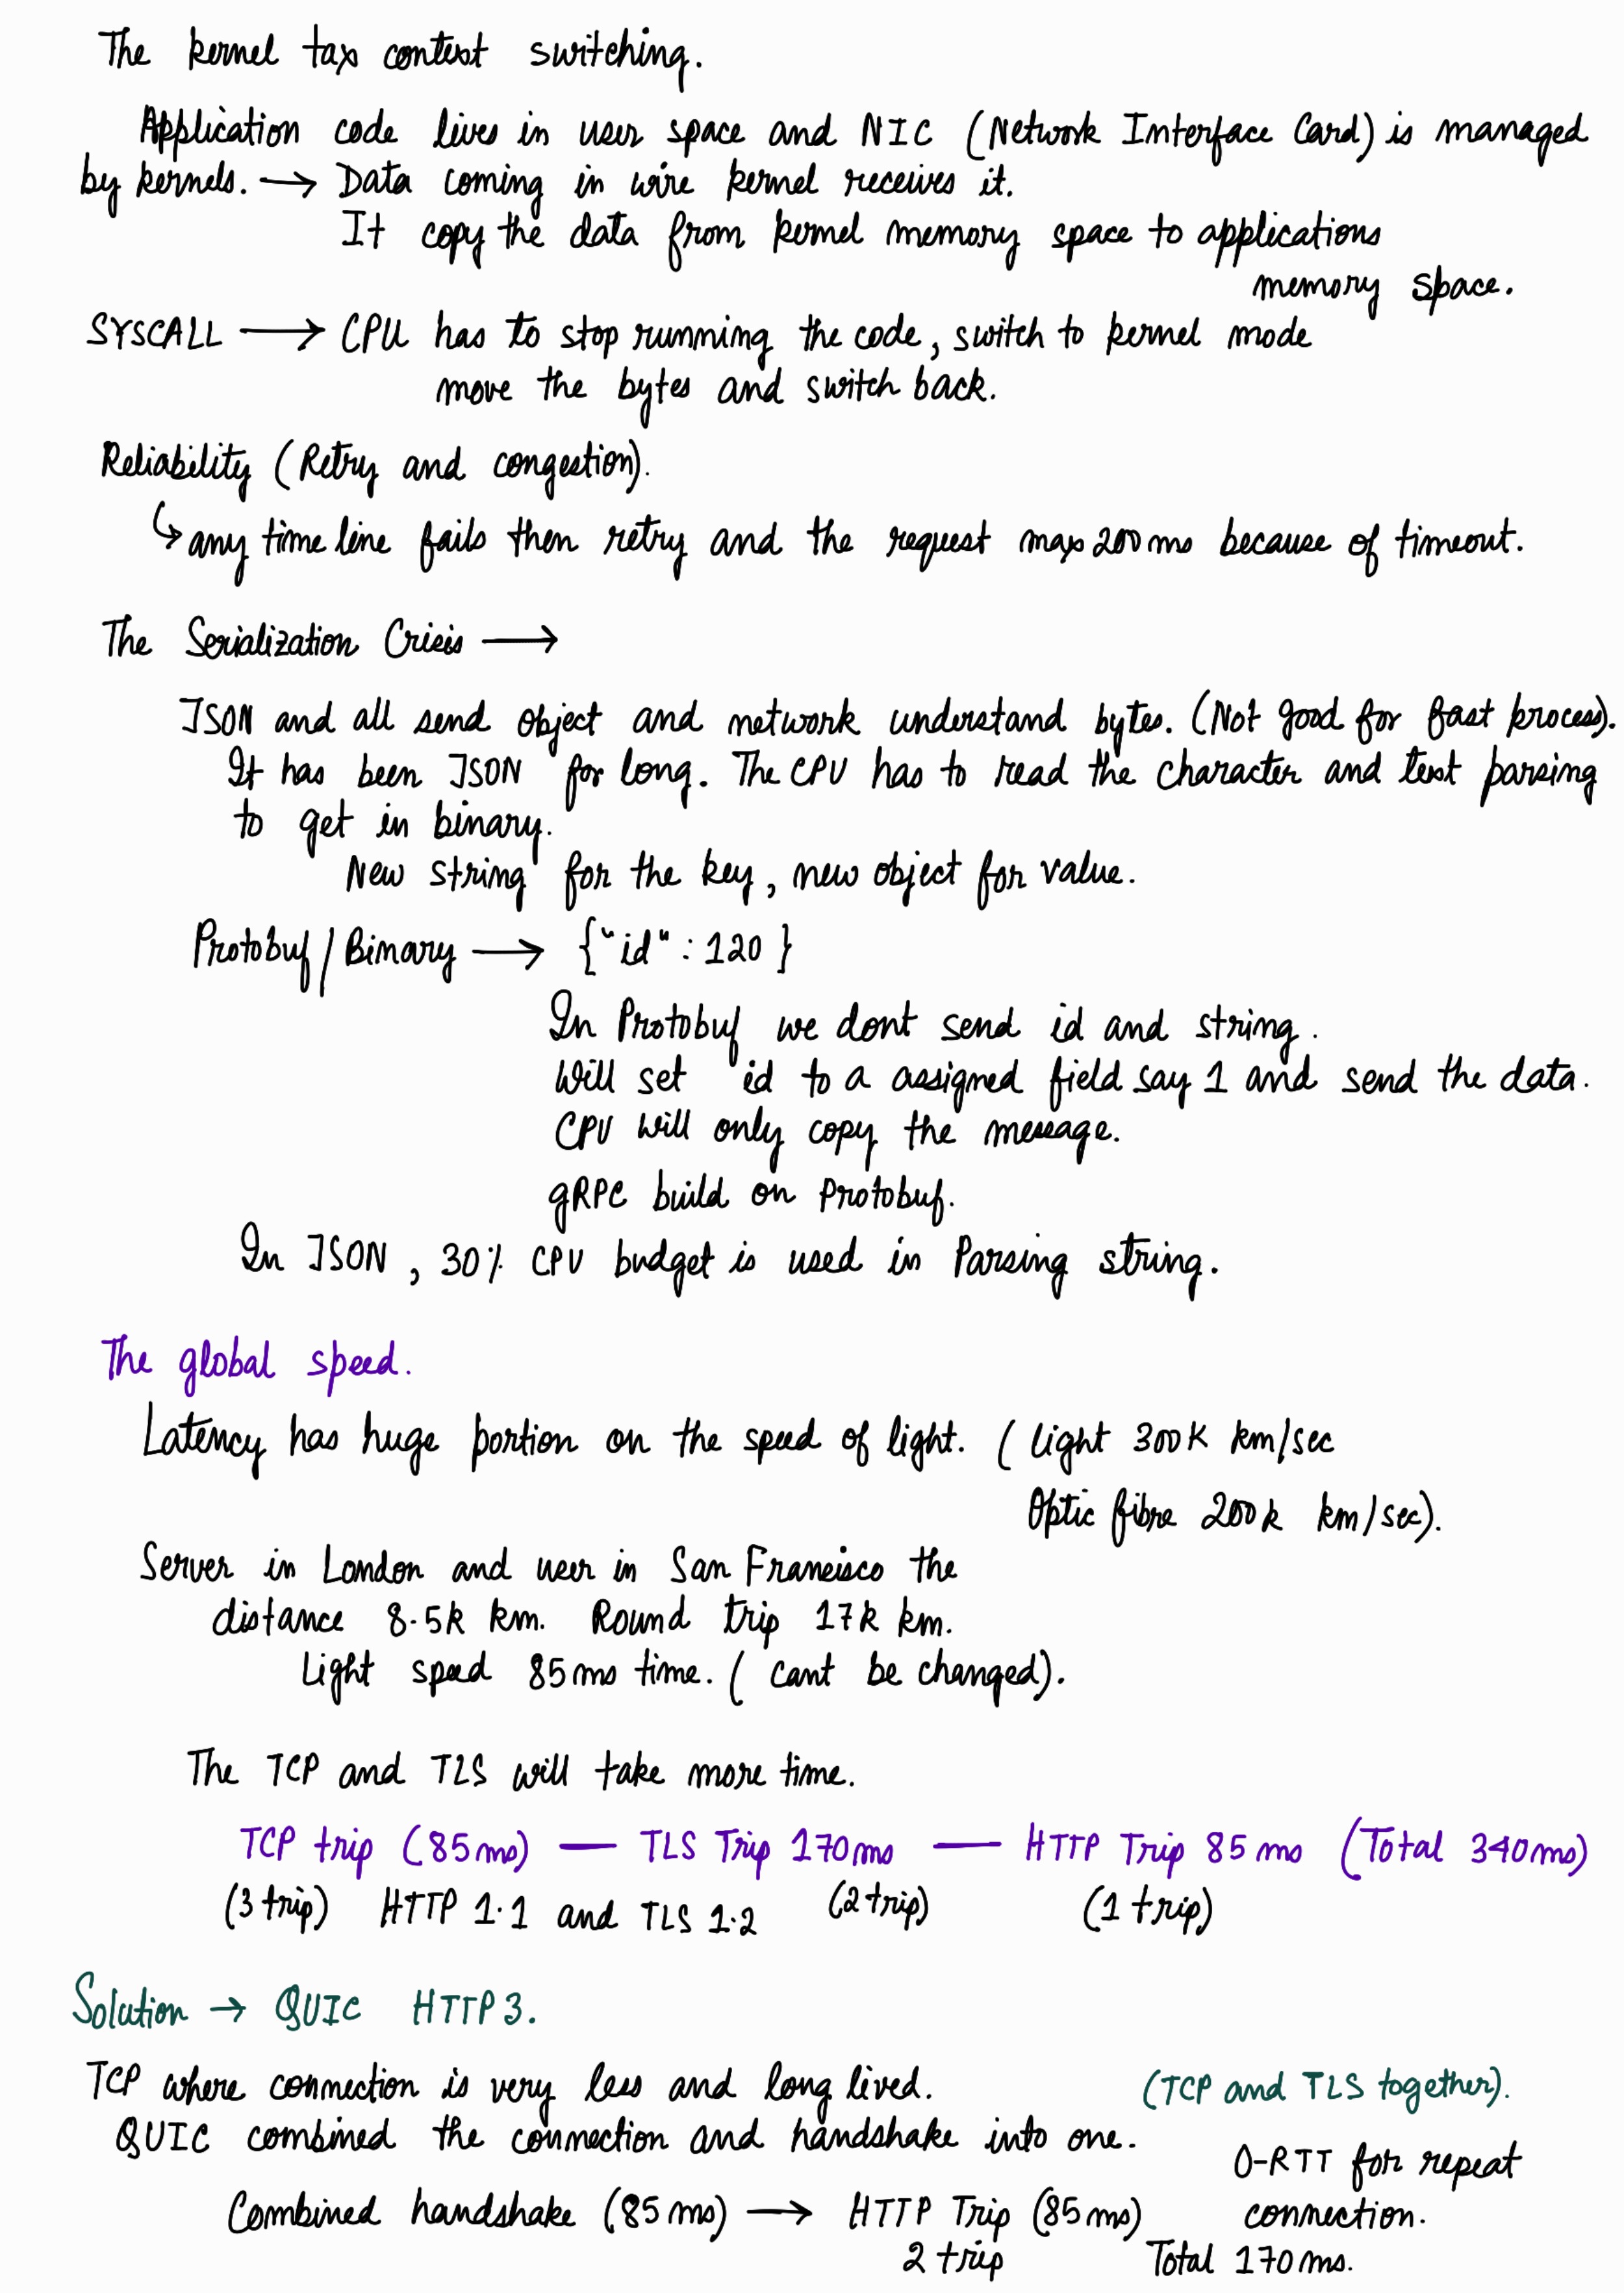 The kernel tax context switching.
Application code lives in user space and NIC (Network Interface Card) is managed
by kernels. → Data coming in wire kernel receives it.
It copy the data from kernel memory space to applications
memory space.
SYSCALL → CPU has to stop running the code, switch to kernel mode
move the bytes and switch back.
Reliability (Retry and congestion).
↳ any time line fails then retry and the request max 200 ms because of timeout.
The Serialization Crisis →
JSON and all send object and network understand bytes. (Not good for fast process).
It has been JSON for long. The CPU has to read the character and text parsing
to get in binary.
New string for the key, new object for value.
Protobuf / Binary → {"id" : 120 }
In Protobuf we dont send id and string.
Will set id to a assigned field say 1 and send the data.
CPU will only copy the message.
gRPC build on Protobuf.
In JSON, 30% CPU budget is used in Parsing string.
The global speed.
Latency has huge portion on the speed of light. ( light 300K km/sec
Optic fibre 200k km/sec).
Server in London and user in San Francisco the
distance 8.5k km. Round trip 17k km.
Light speed 85 ms time. ( cant be changed).
The TCP and TLS will take more time.
TCP trip (85 ms) — TLS Trip 170 ms — HTTP Trip 85 ms (Total 340 ms)
(3 trip) HTTP 1.1 and TLS 1.2 (2 trip) (1 trip)
Solution → QUIC HTTP 3.
TCP where connection is very less and long lived. (TCP and TLS together).
QUIC combined the connection and handshake into one.
0-RTT for repeat
Combined handshake (85 ms) → HTTP Trip (85 ms) connection.
2 trip Total 170 ms.